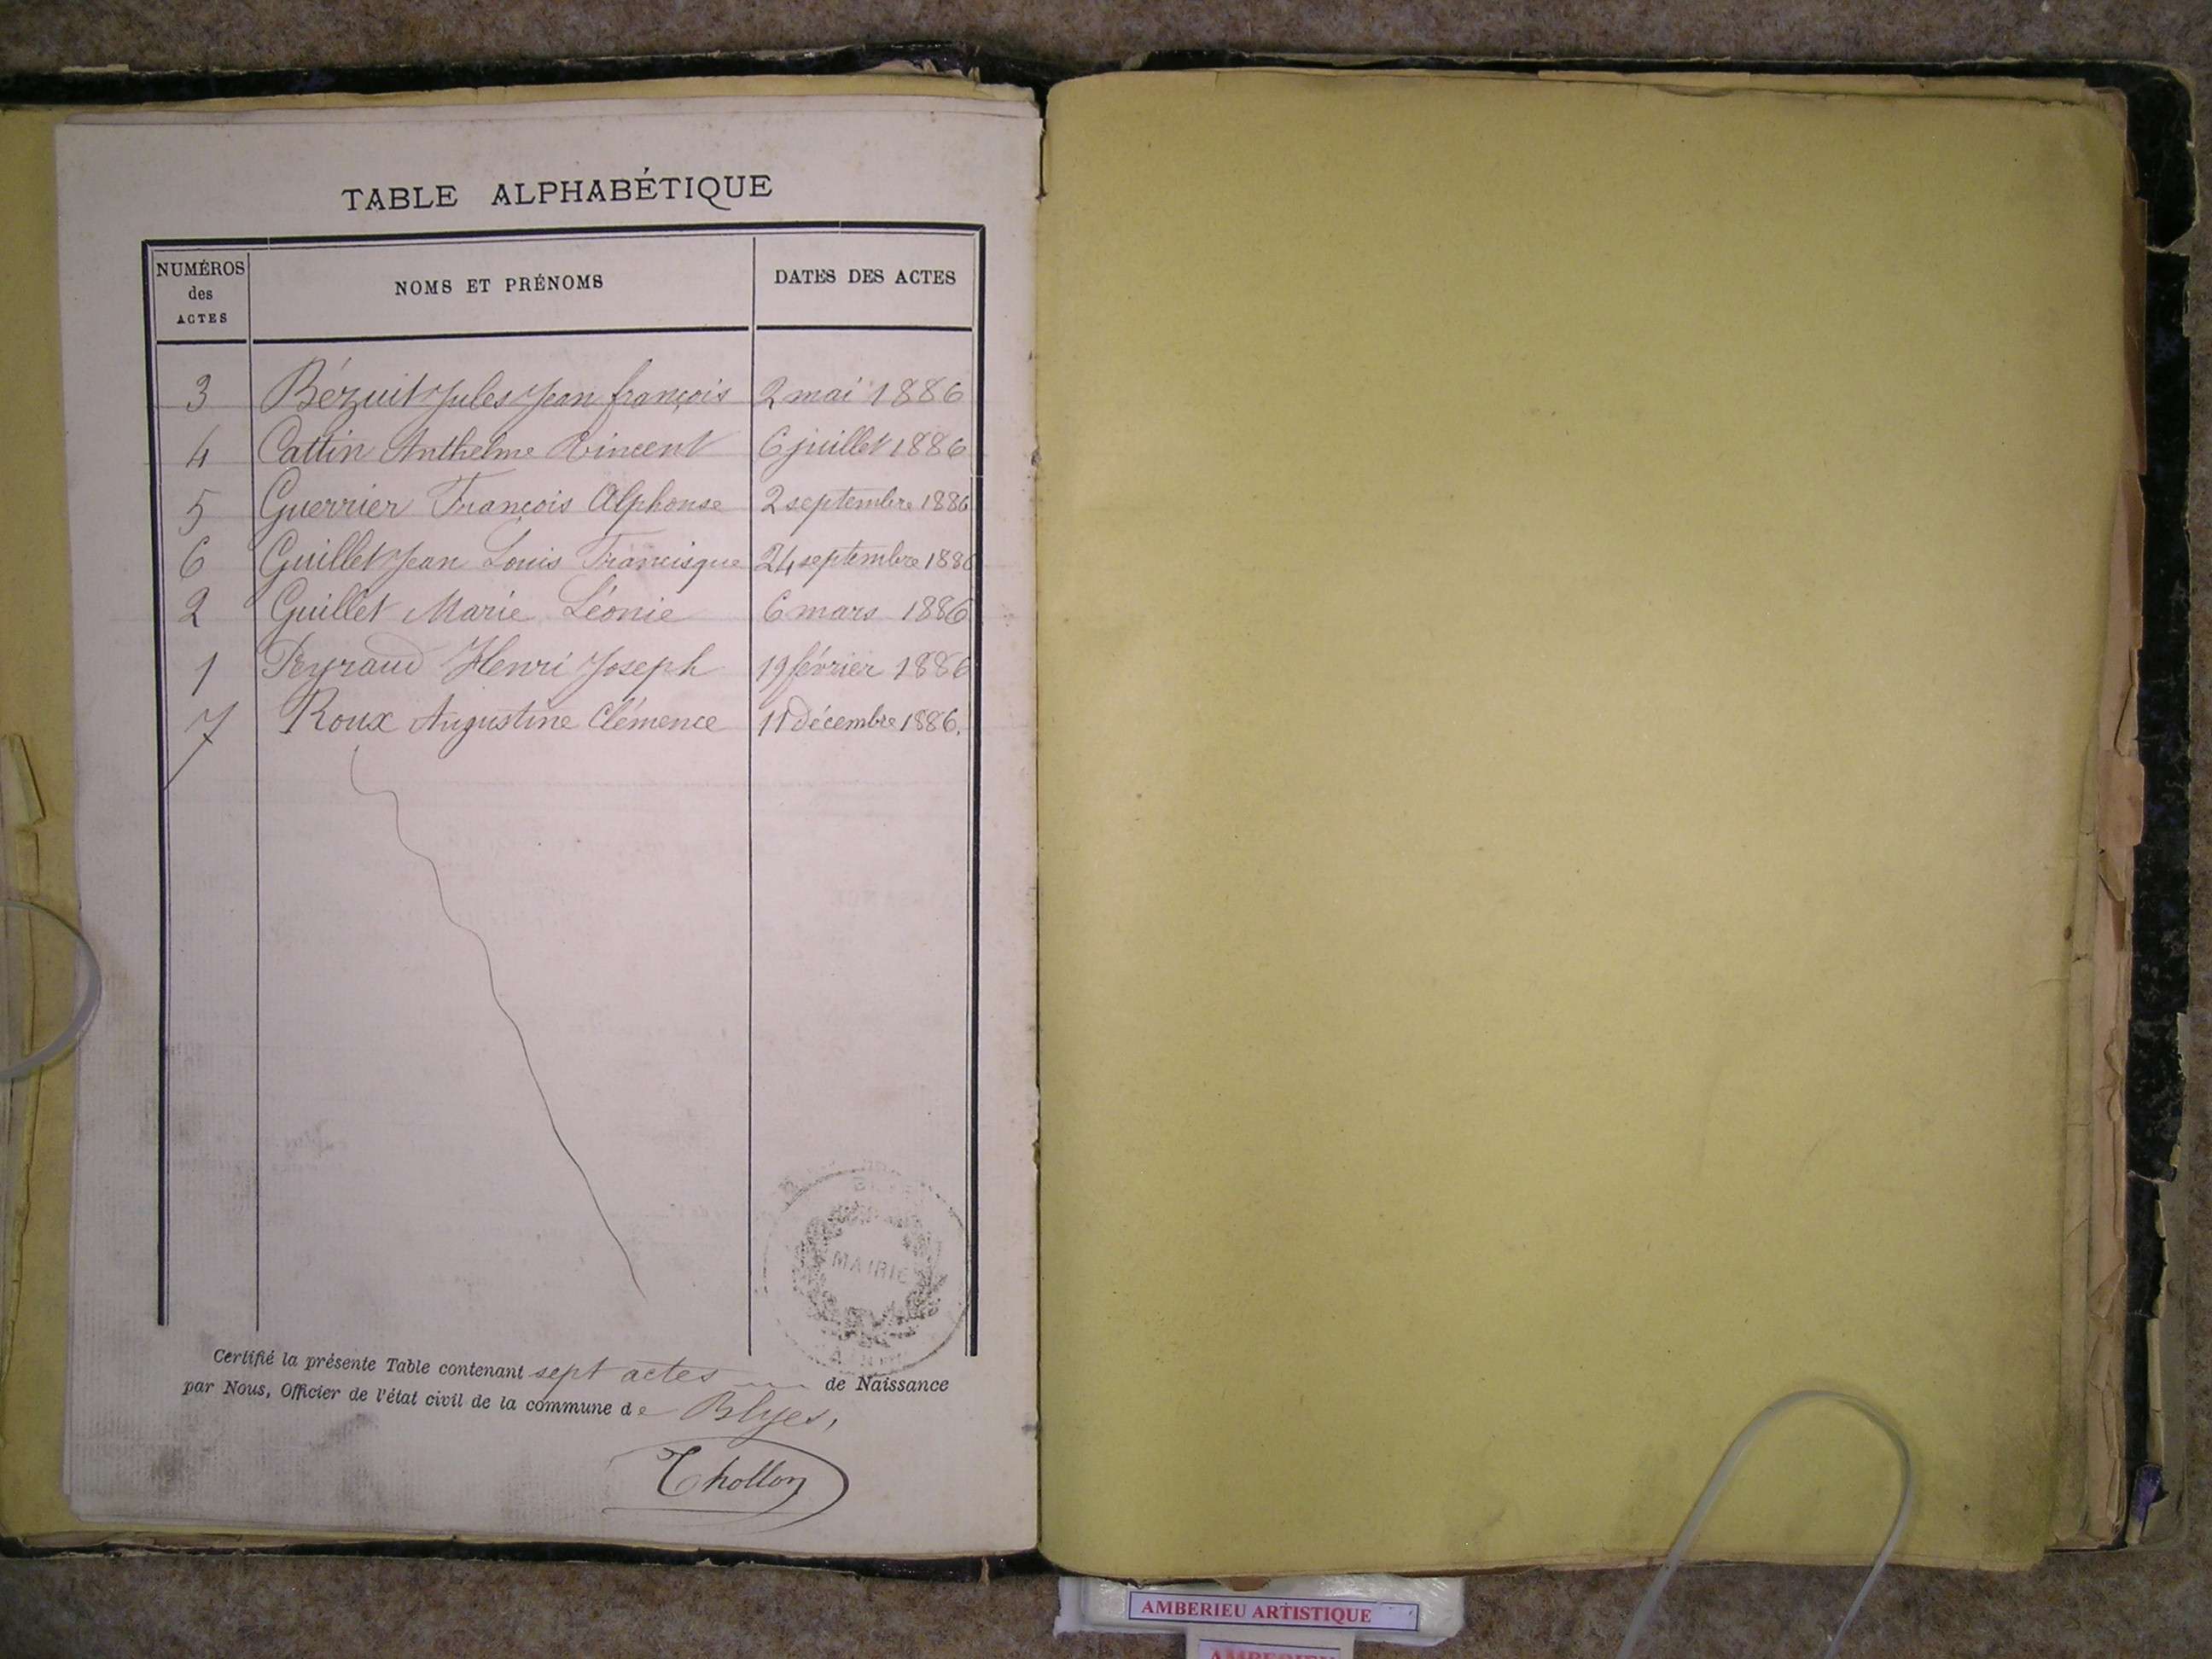 TABLE ALPHABÉTIQUE
NUMÉROS des ACTES
NOMS ET PRÉNOMS
DATES DES ACTES
3 Bézuit Jules Jean françois 2 mai 1886
4 Cattin Anthelme Vincent 6 juillet 1886
5 Guerrier François Alphonse 2 septembre 1886
6 Guillet Jean Louis Francisque 24 septembre 1886
2 Guillet Marie Léonie 6 mars 1886
1 Peyraud Henri Joseph 19 février 1886
7 Roux Augustine Clémence 11 décembre 1886.
MAIRIE
Certifié la présente Table contenant sept actes de Naissance
par Nous, Officier de l'état civil de la commune de Blyes,
Chollon
AMBERIEU ARTISTIQUE
AMBERIEU